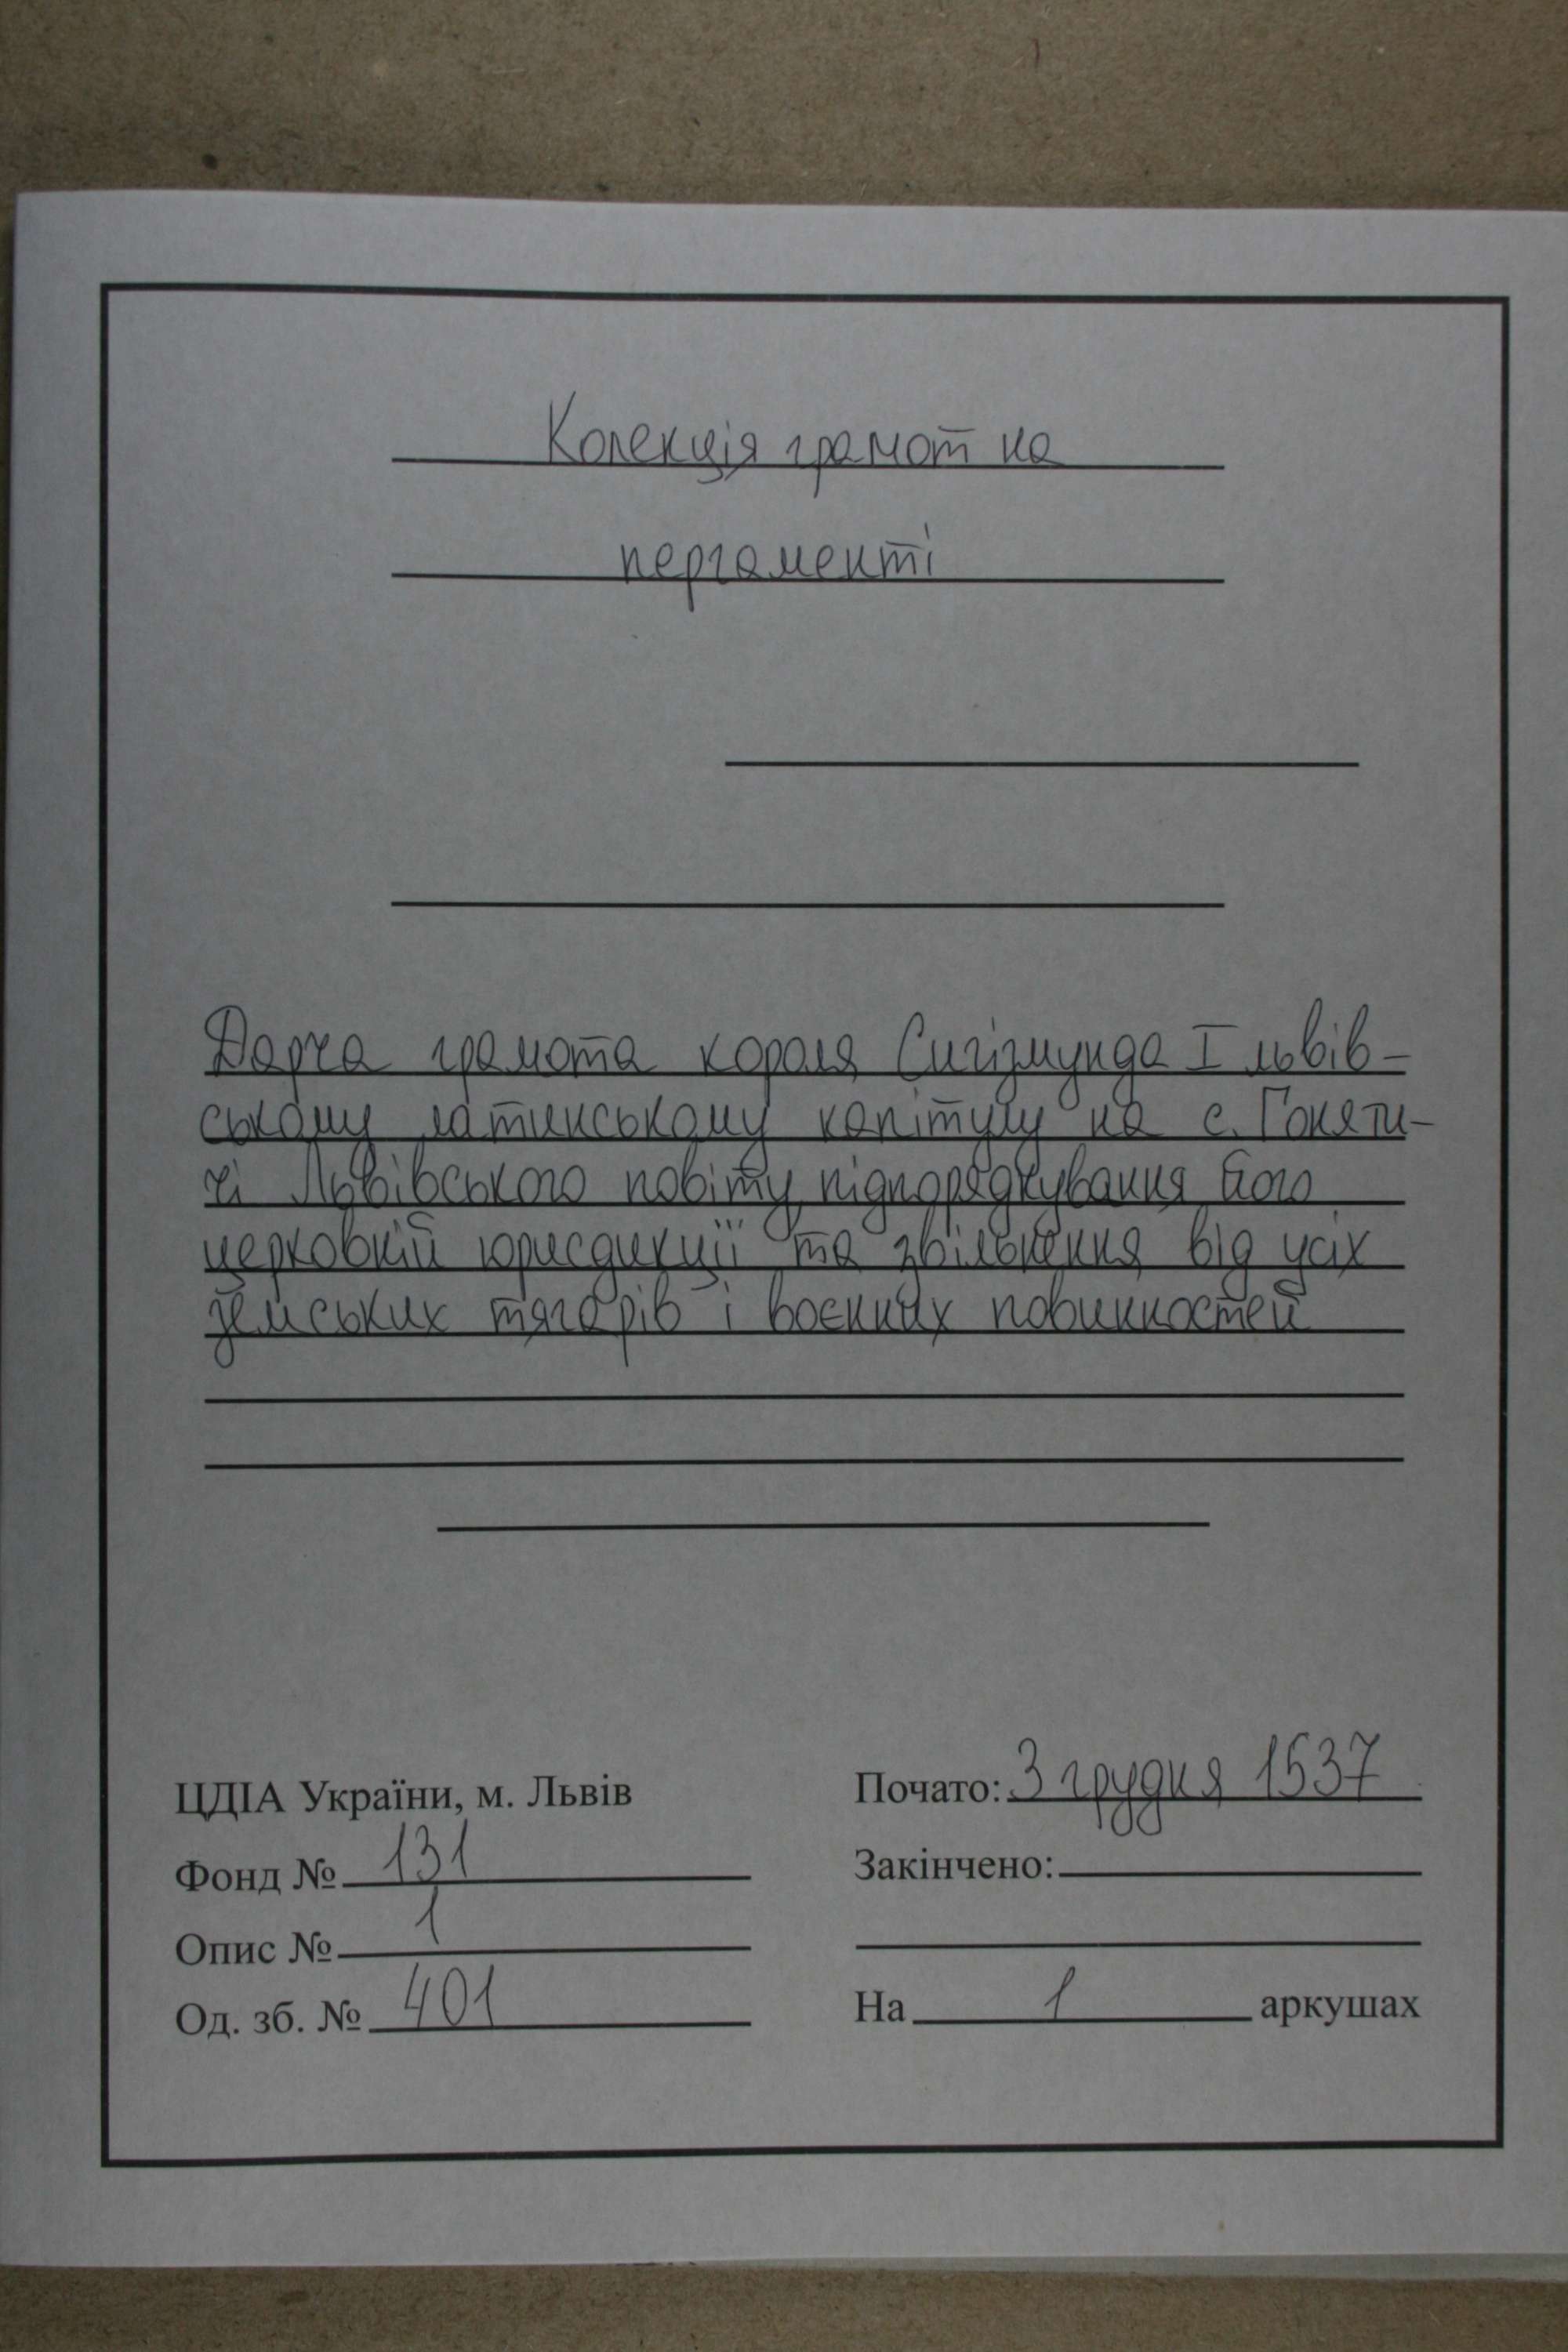 Колекція грамот на
пергаменті
Дарча грамота короля Сигізмунда I львів-
ському латинському капітулу на с. Гоняти-
чі Львівського повіту, підпорядкування його
церковній юрисдикції та звільнення від усіх
земських тягарів і воєнних повинностей
ЦДІА України, м. Львів
Фонд № 131
Опис № 1
Од. зб. № 401
Почато: 3 грудня 1537
Закінчено:
На 1 аркушах